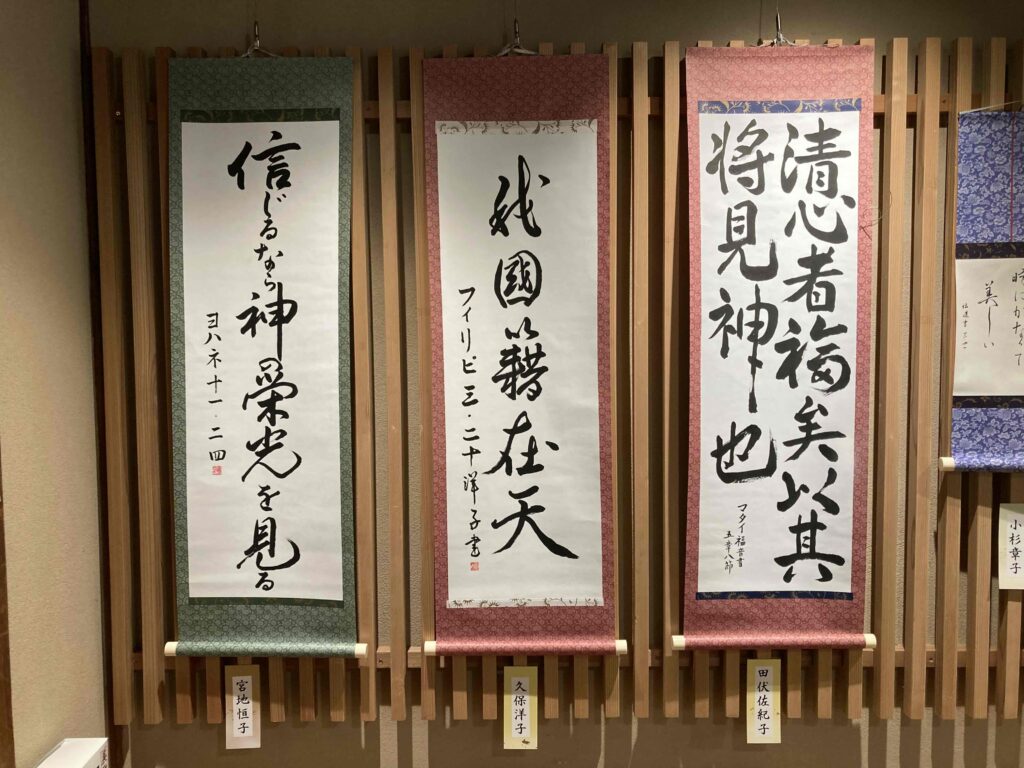 時にかなって
美しい
小杉章子
清心者福矣以其
将見神也
マタイ福音書
五章八節
田伏佐紀子
我國籍在天
フィリピ三・二十洋子書
久保洋子
信じるなら神の榮光を見る
ヨハネ十一・二四
宮地恒子